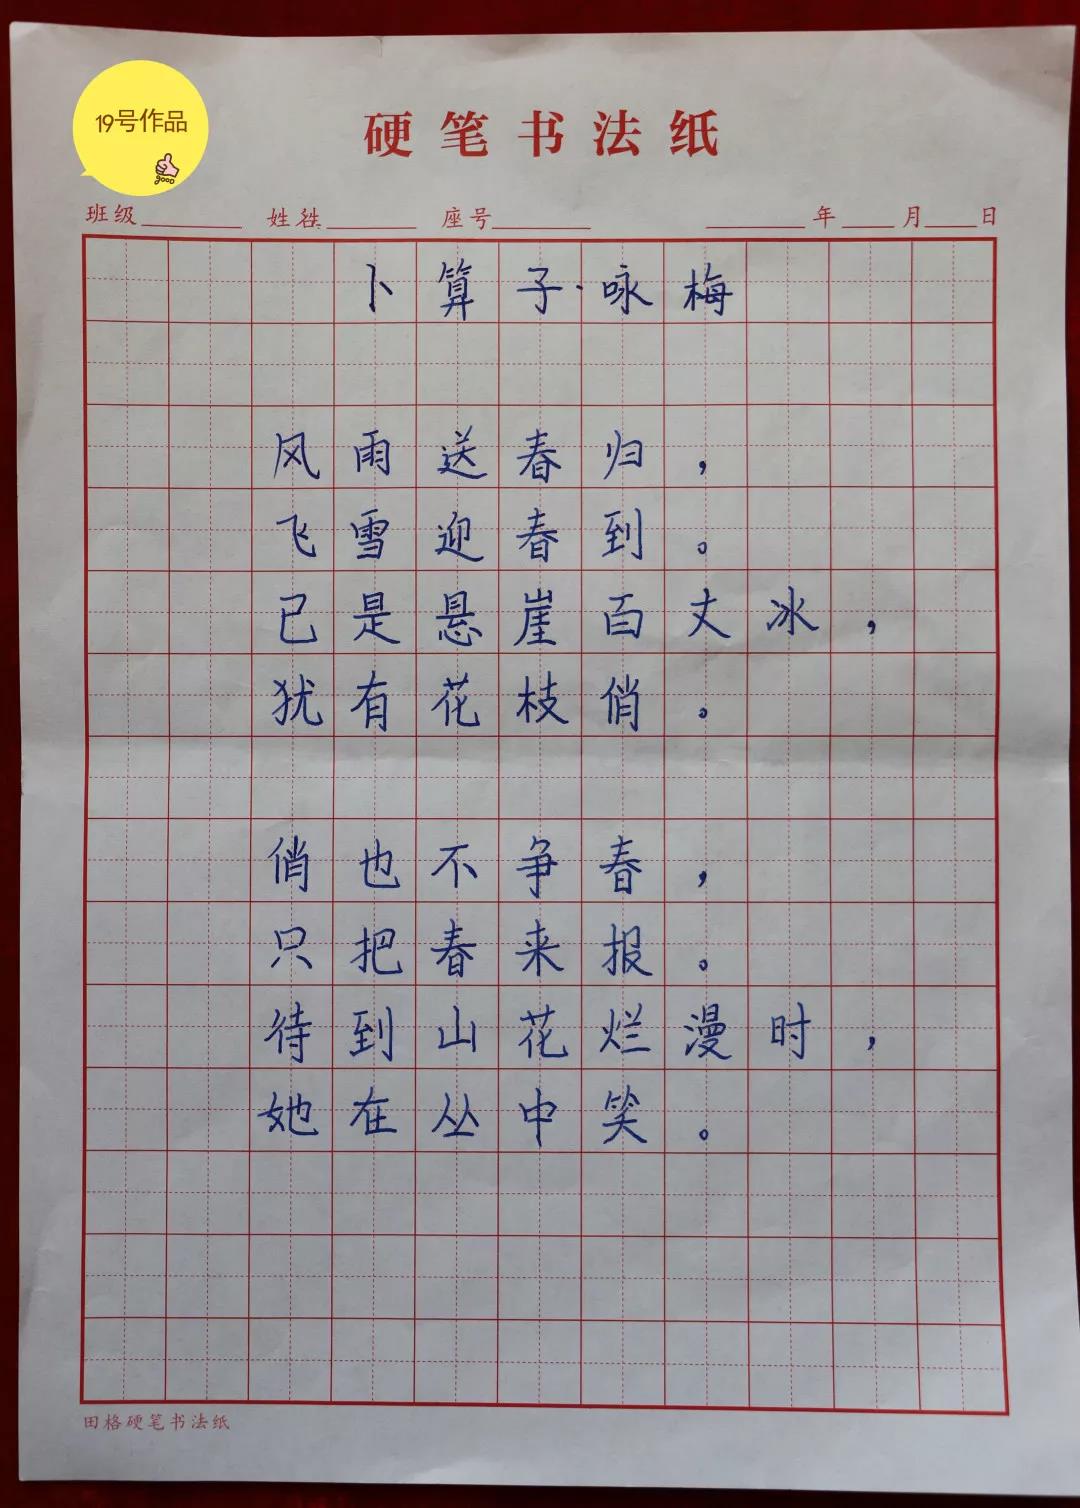 19号作品
good
硬笔书法纸
班级 姓名 座号 年 月 日
卜算子·咏梅
风雨送春归，
飞雪迎春到。
已是悬崖百丈冰，
犹有花枝俏。
俏也不争春，
只把春来报。
待到山花烂漫时，
她在丛中笑。
田格硬笔书法纸